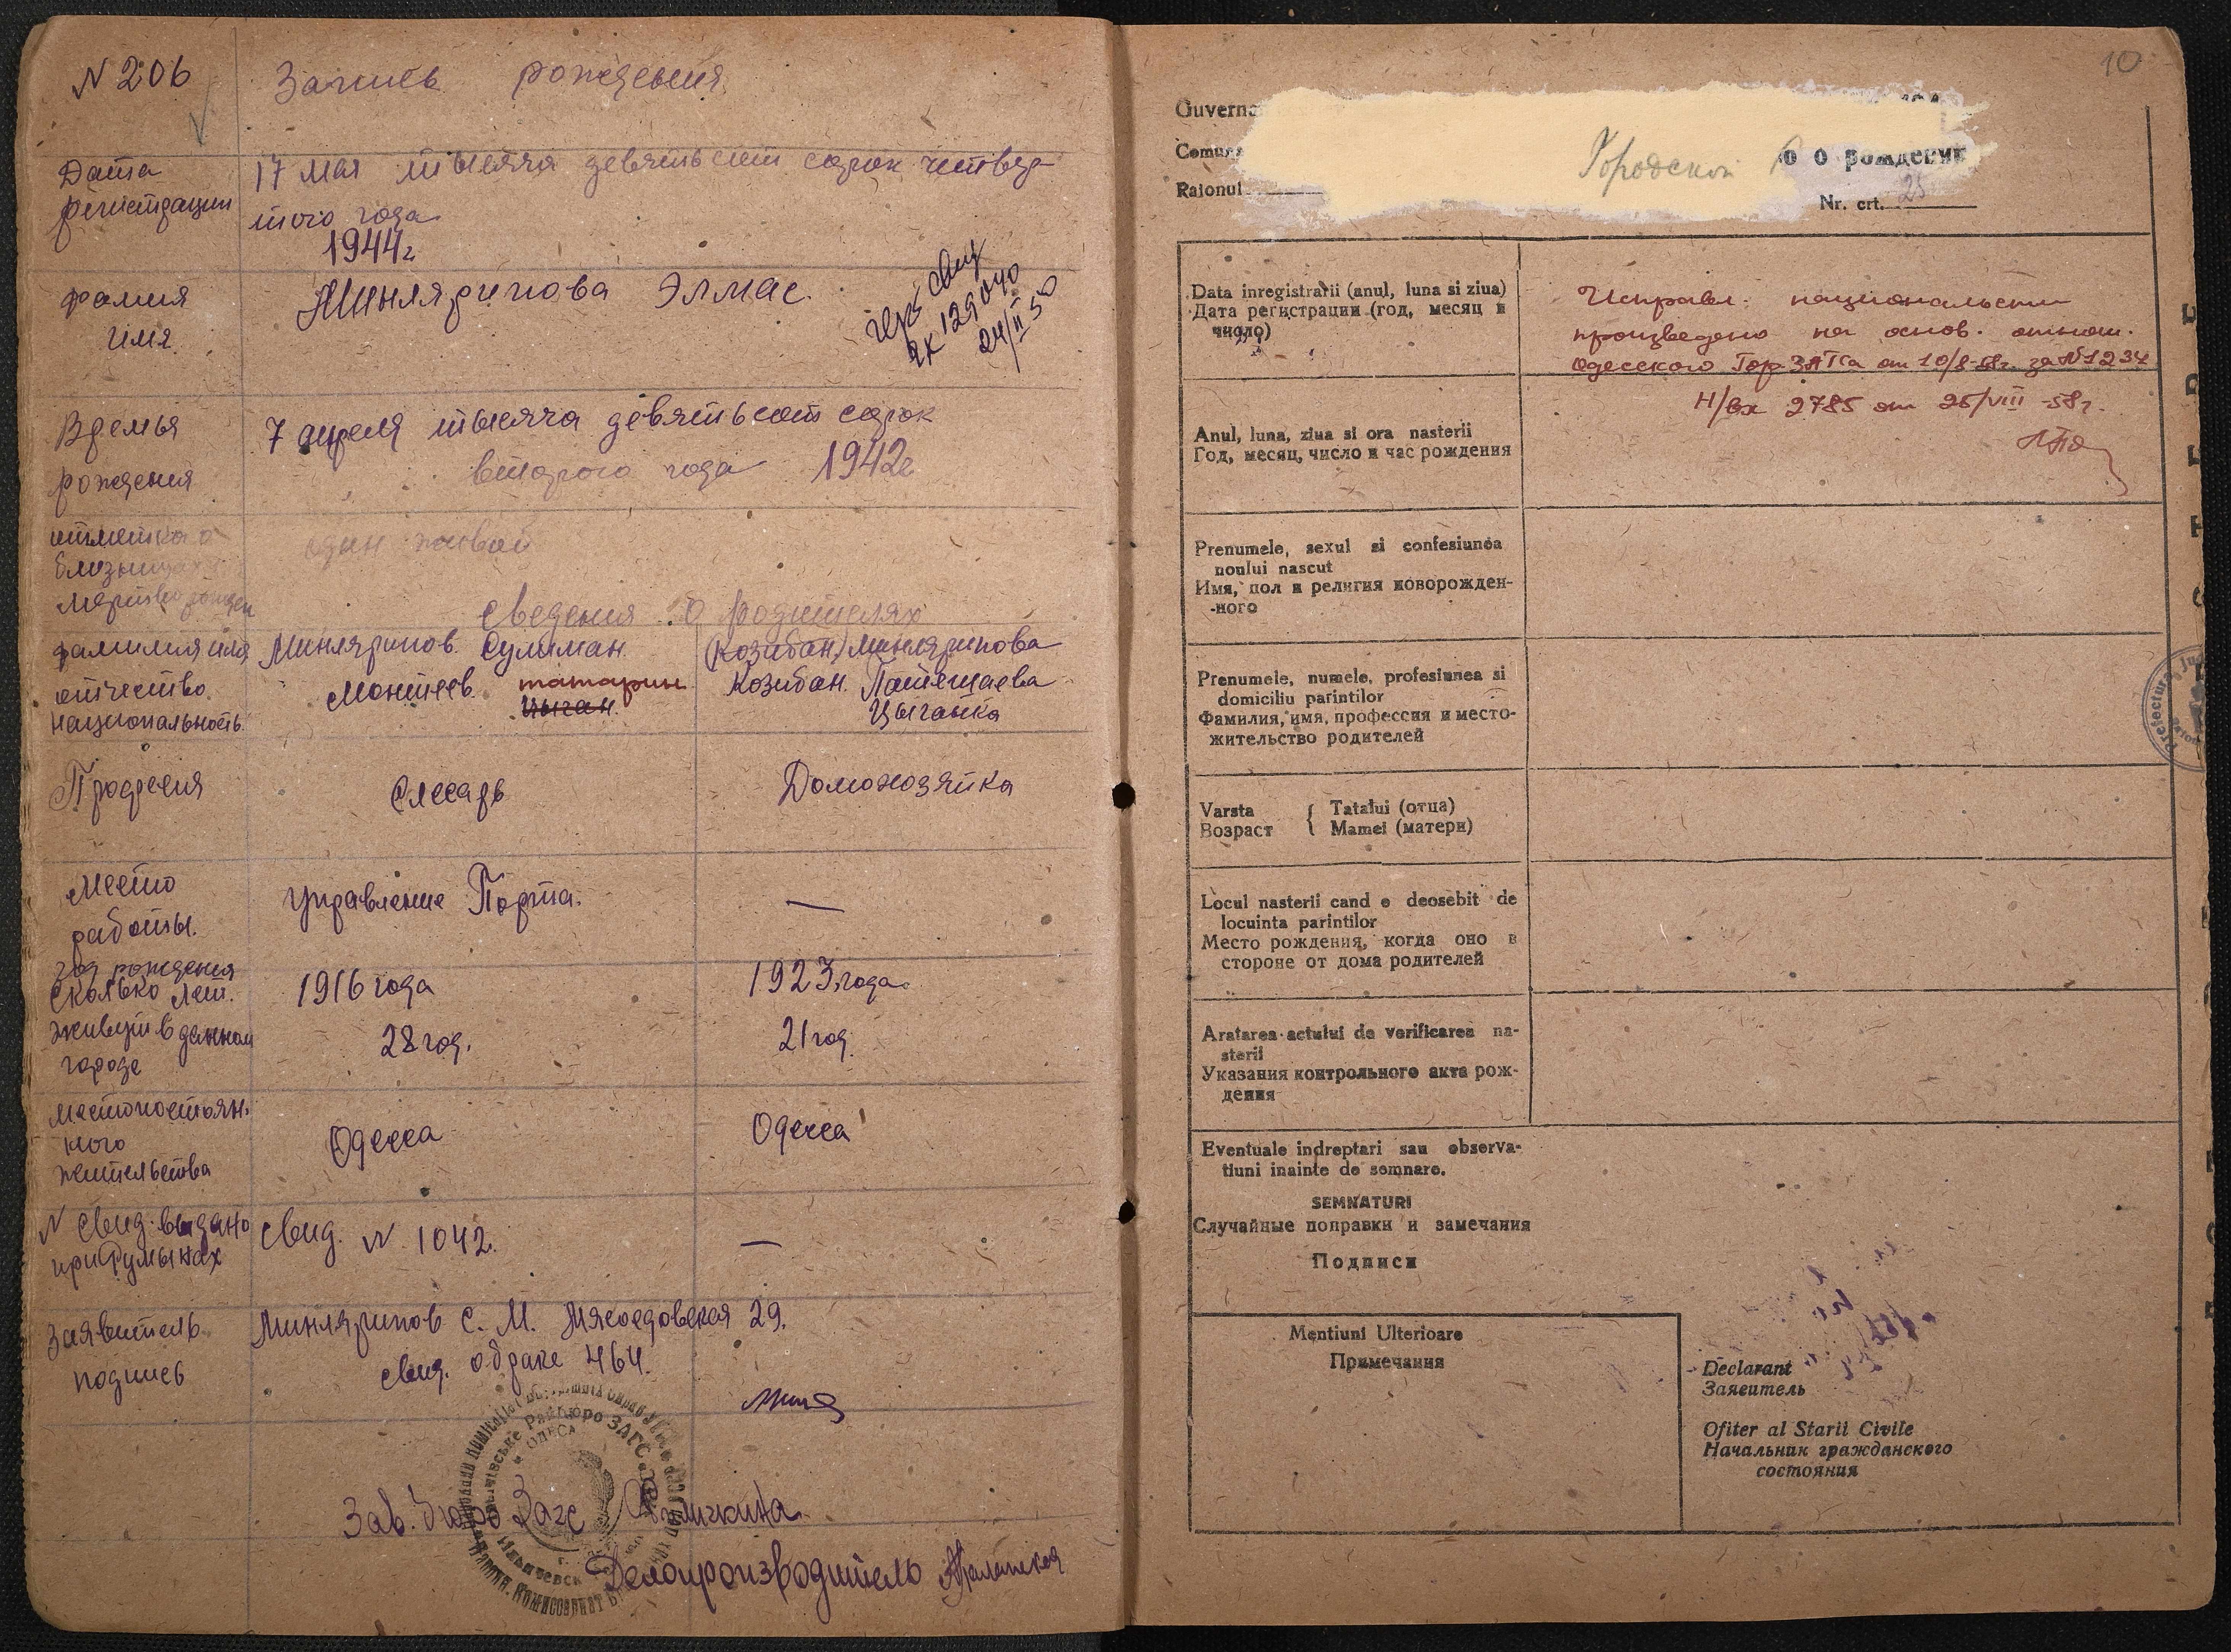 N 206
Запись рождения
Дата регистрации
17 мая тысяча девятьсот сорок четвер-
того года
1944г
Фамилия
имя
Минляринова Элмас.
24/II 50
Время
рождения
7 апреля тысяча девятьсот сорок
второго года 1942г
отметка о
близнецах
мертворожден
один живой
Сведения о родителях
фамилия имя
отчество
национальность
Минляринов Сулиман
татарин
Цыган.
(Козибан) Минляринова
Козибан
Цыганка
Профессия
Слесарь
Домохозяйка
Место
работы.
Управление Порта.
—
год рождения
сколько лет.
1916 года
1923 года
живут в данном
городе
28 год.
21 год.
место постоян-
ного
жительства
Одесса
Одесса
N свид. выдано
при Румынах
Свид. N 1042.
—
Заявитель
подпись
Минляринов С. М. Мясоедовская 29.
свид. о браке 464.
Зав. Бюро Загс
Делопроизводитель
10
Guverna
Comuna
Raionul
Городской
о о рождении
Nr. crt. 25
Data inregistrarii (anul, luna si ziua)
Дата регистрации (год, месяц и
число)
Исправл. национальности
произведено на основ. отнош.
Одесского ГорЗАГСа от 10/8-58г. за №1234
Н/вх 2785 от 25/VIII-58г.
Anul, luna, ziua si ora nasterii
Год, месяц, число и час рождения
Prenumele, sexul si confesiunea
noului nascut
Имя, пол и религия новорожден-
-ного
Prenumele, numele, profesiunea si
domiciliu parintilor
Фамилия, имя, профессия и место-
жительство родителей
Varsta
Возраст
Tatalui (отца)
Mamei (матери)
Locul nasterii cand e deosebit de
locuinta parintilor
Место рождения, когда оно в
стороне от дома родителей
Aratarea actului de verificarea na-
sterii
Указания контрольного акта рож-
дения
Eventuale indreptari sau observa-
tiuni inainte de semnare.
SEMNATURI
Случайные поправки и замечания
Подписи
Mentiuni Ulterioare
Примечания
Declarant
Заявитель
Ofiter al Starii Civile
Начальник гражданского
состояния